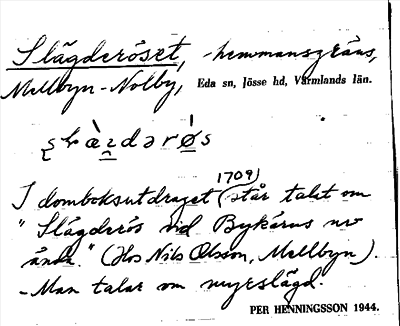 Slägderöset, -hemmansgräns,
Mellbyn-Nolby, Eda sn, Jösse hd, Värmlands län.
I domboksutdraget (1709) står talat om
"Slägderös vid Bykärns no
ända." (Hos Nils Olsson, Mellbyn).
-Man talar om myrslägd.
PER HENNINGSSON 1944.